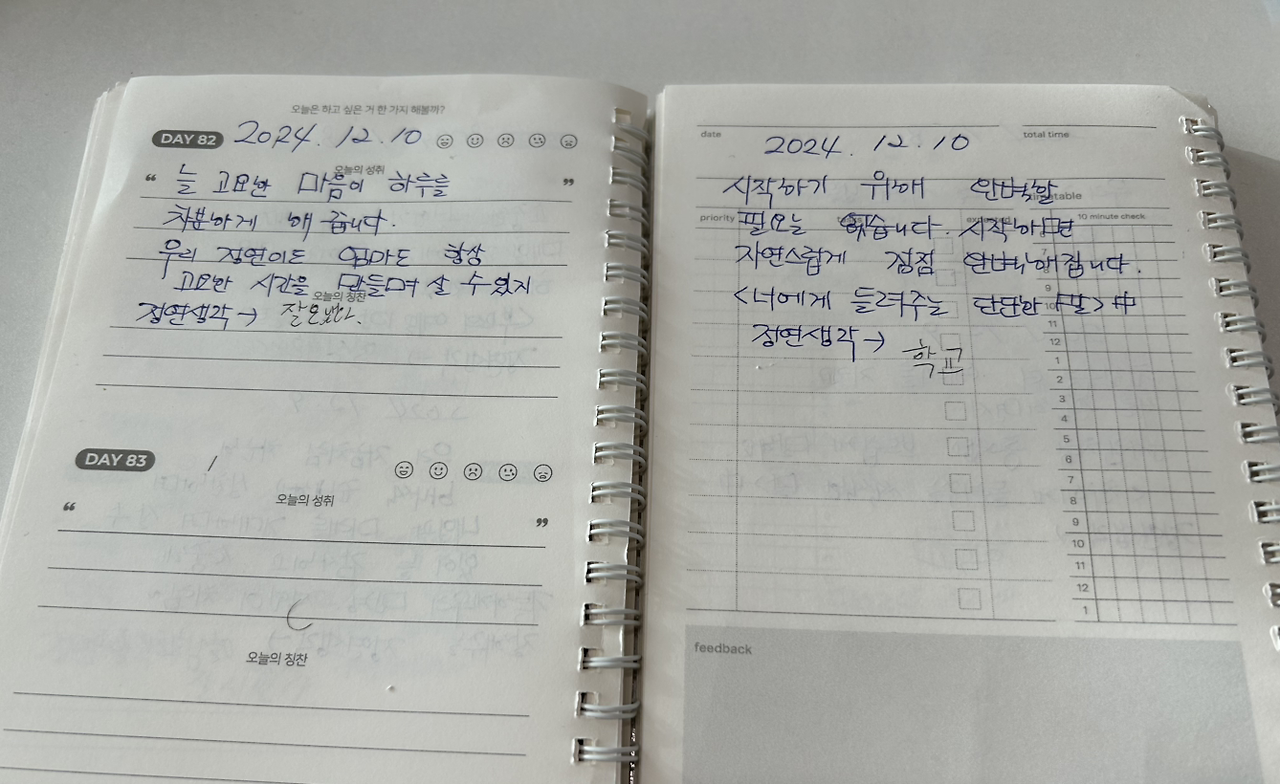 오늘은 하고 싶은 거 한 가지 해볼까?
DAY 82 2024. 12. 10
오늘의 성취
“ 늘 고요한 마음이 하루를 ”
차분하게 해 줍니다.
우리 정연이도 엄마도 항상
고요한 시간을 만들며 살 수 있지
오늘의 칭찬
정연생각→
DAY 83 /
오늘의 성취
“ ”
오늘의 칭찬
date total time
2024. 12. 10
시작하기 위해 완벽할
timetable
priority 10 minute check
필요는 없습니다. 시작하면
자연스럽게 점점 완벽해집니다.
<너에게 들려주는 단단한 말> 中
정연생각→ 학교
7
9
10
11
12
1
2
3
4
5
6
7
8
9
10
11
12
1
feedback